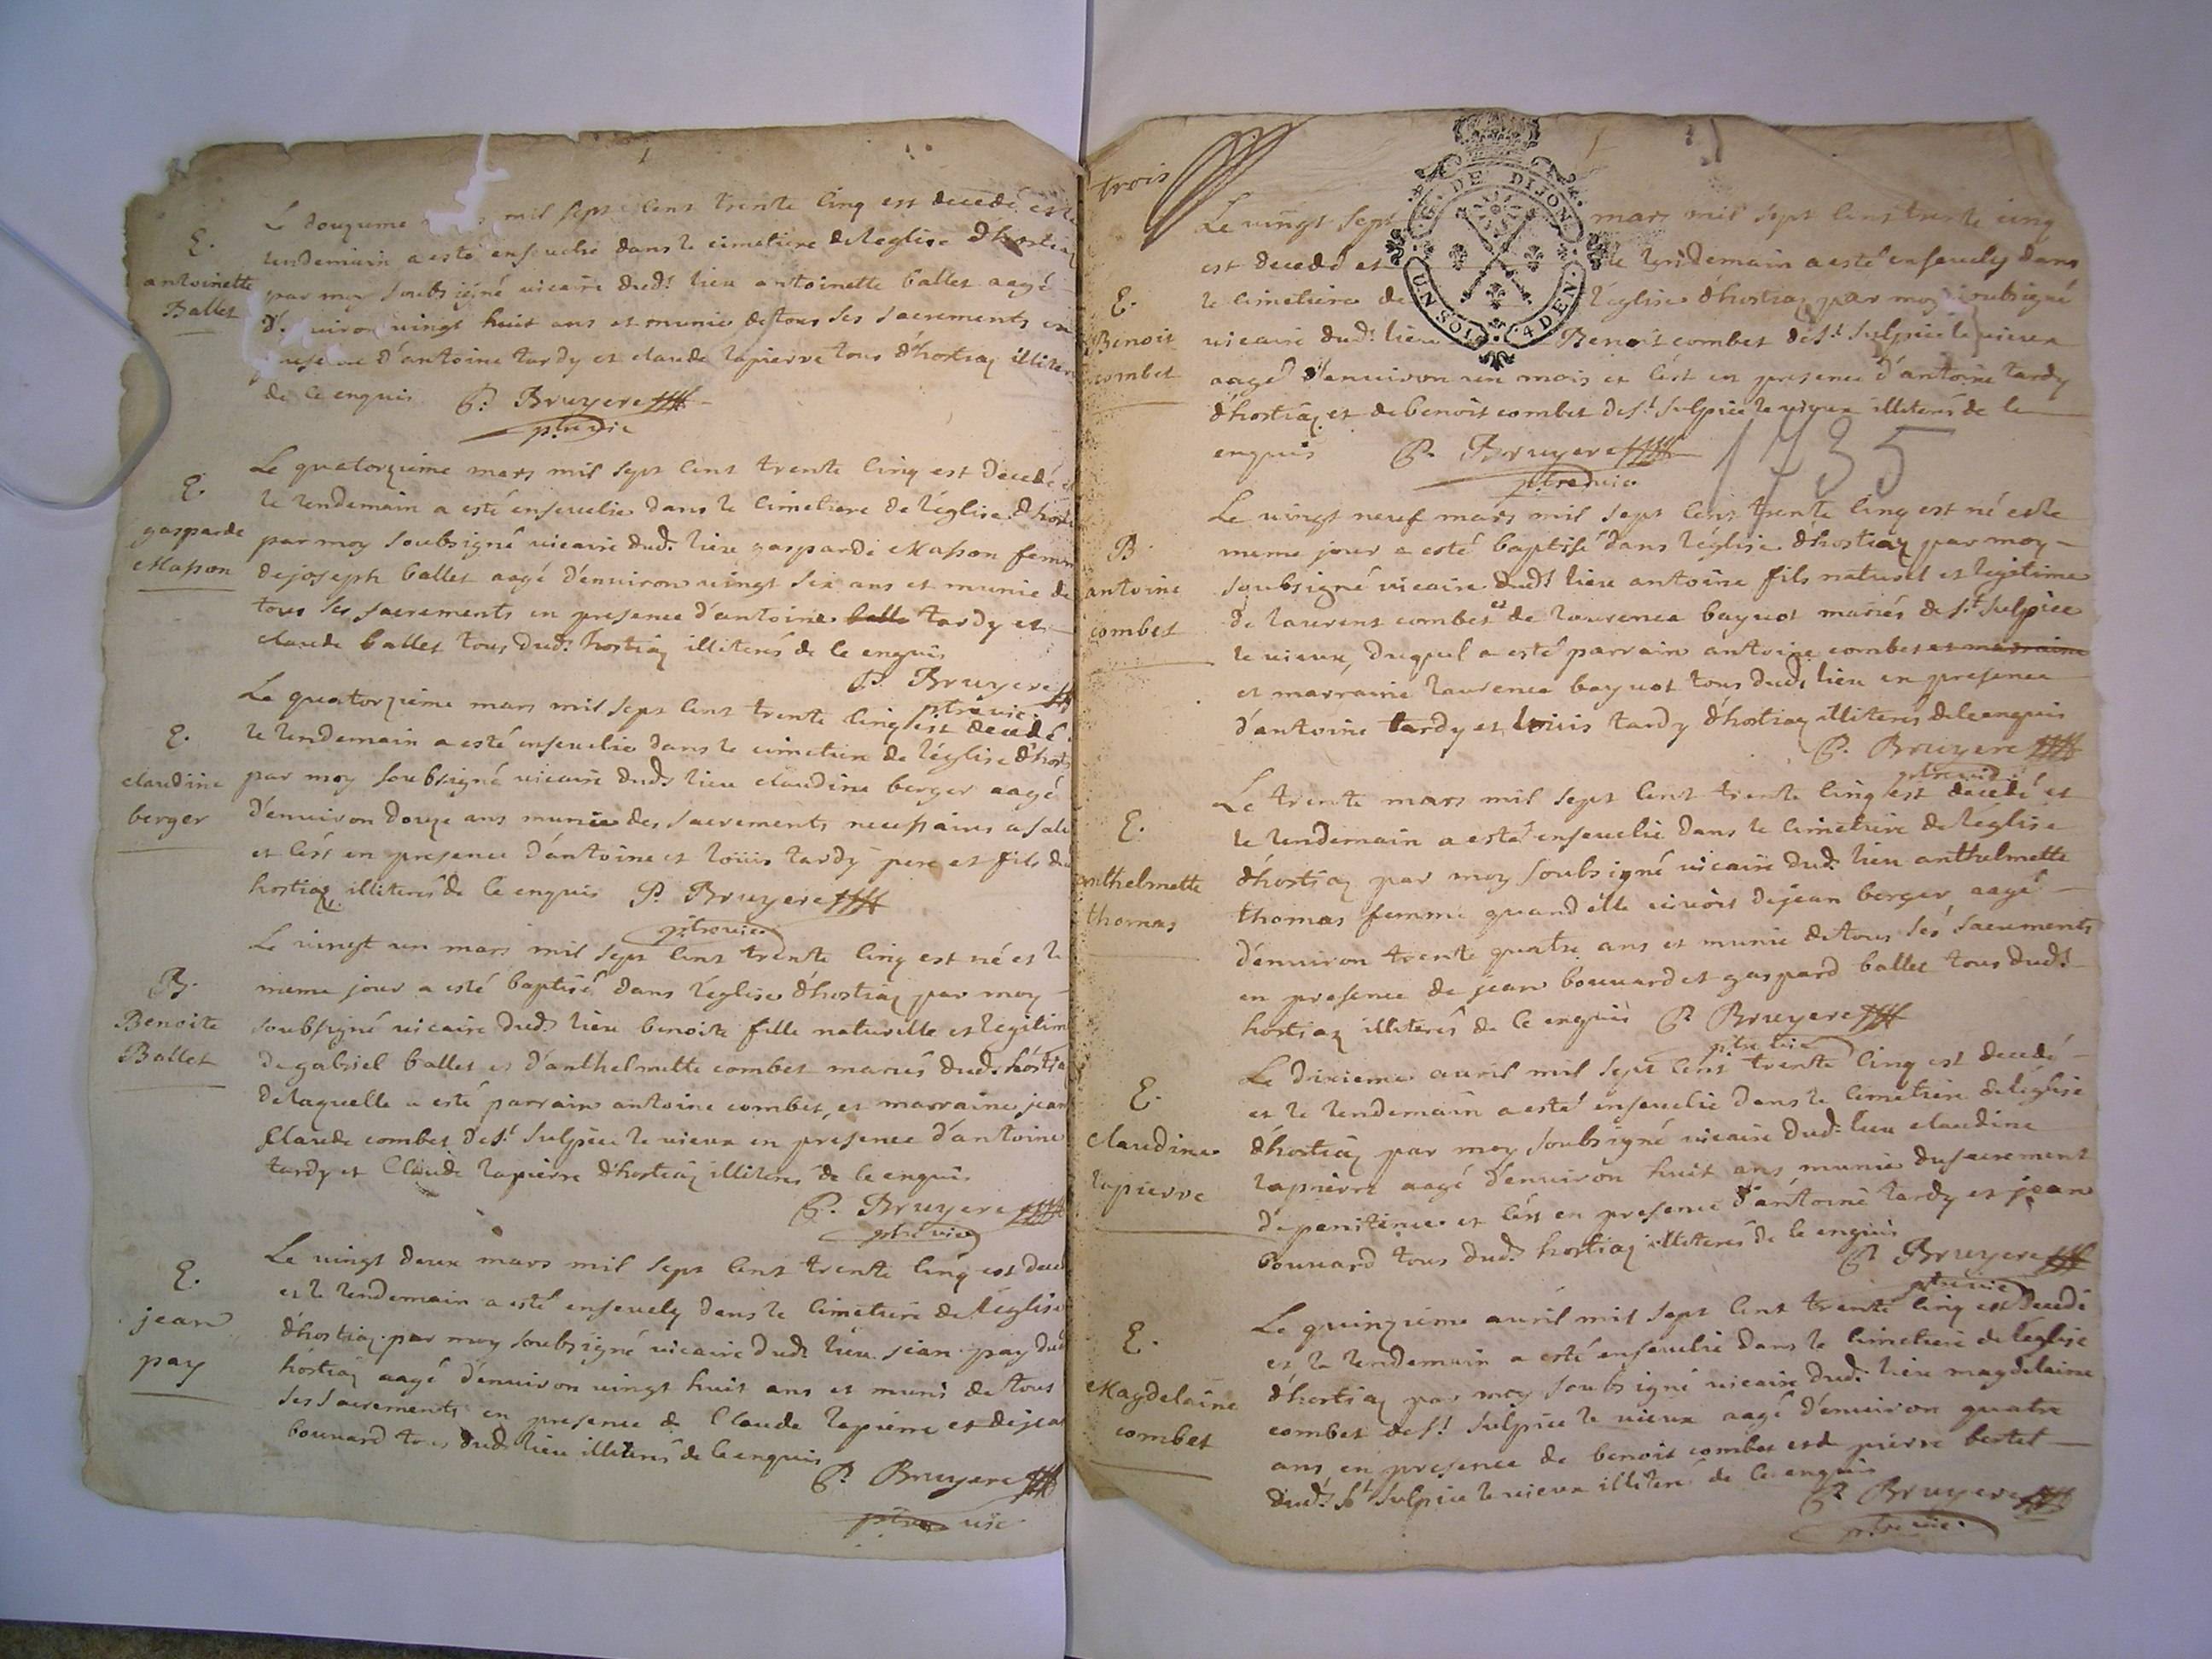 E.
antoinette
Ballet
Le douzieme mil sept cent trente cinq est decedé et le
lendemain a esté enseuelie dans le cimetiere de leglise d'hostiaz
par moy soubsigné vicaire dud. lieu antoinette ballet aagé
vingt huit ans et munie de tous ses sacrements en
presence d'antoine tardy et claude lapierre tous d'hostiaz illiteres
de ce enquis P. Bruyere
ptre vic
E.
gasparde
Masson
Le quatorzieme mars mil sept cent trente cinq est decedé et
le lendemain a esté enseuelie dans le cimetiere de l'église d'host
par moy soubsigné vicaire dud. lieu gasparde Masson femme
de joseph ballet aagé d'environ vingt six ans et munie de
tous ses sacrements en presence d'antoine balle tardy et
claude ballet tous dud. hostiaz illiterés de ce enquis
P. Bruyere
ptre vic.
E.
claudine
berger
Le quatorzieme mars mil sept cent trente cinq est decedé
le lendemain a esté enseuelie dans le cimetiere de l'église d'host
par moy soubsigné vicaire dud. lieu claudine berger aagé
d'environ douze ans munie des sacrements necessaires a salu
et c'est en presence d'antoine et loüis tardy pere et fils du
hostiaz illiterés de ce enquis P. Bruyere
ptre vic
B.
Benoite
Ballet
Le vingt un mars mil sept cent trente cinq est né et le
meme jour a esté baptisé dans l'église d'hostiaz par moy
soubsigné vicaire dud. lieu benoite fille naturelle et legitim
de gabriel ballet et d'anthelmette combet mariés dud. hostia
de laquelle a esté parrain antoine combet, et marraine jean
Claude combet de St. Sulpice le vieux en presence d'antoine
tardy et Claude lapierre d'hostiaz illiterés de ce enquis
P. Bruyere
ptre vic
E.
jean
pay
Le vingt deux mars mil sept cent trente cinq est deced
et le lendemain a esté ensevely dans le cimetiere de l'église
d'hostiaz par moy soubsigné vicaire dud. lieu jean pay dud
hostiaz aagé d'environ vingt huit ans et muni de tous
ses sacrements en presence de Claude lapierre et de jean
bouvard tous dud. lieu illiterés de ce enquis
P. Bruyere
ptre vic
trois
G. DE DIJON
UN SOL 4 DEN.
E.
Benoit
combet
Le vingt sept mars mil sept cens trente cinq
est decedé et le lendemain a esté ensevely dans
le cimetiere de l'église d'hostiaz par moy soubsigné
vicaire dud. lieu Benoit combet de St. Sulpice le vieux
aagé d'environ un mois et c'est en presence d'antoine tardy
d'hostiaz et de benoit combet de St. Sulpice le vieux illiterés de ce
enquis P. Bruyere
ptre vic
1735
B.
antoine
combet
Le vingt neuf mars mil sept cent trente cinq est né et le
meme jour a esté baptisé dans l'église d'hostiaz par moy
soubsigné vicaire dud. lieu antoine fils naturel et legitime
de laurent combet et de laurence bayuot mariés de St. Sulpice
le vieux, duquel a esté parrain antoine combet et marraine
et marraine laurence bayuot tous dud. lieu en presence
d'antoine tardy et loüis tardy d'hostiaz illiterés de ce enquis
P. Bruyere
ptre vic
E.
anthelmette
thomas
Le trente mars mil sept cent trente cinq est decedé et
le lendemain a esté enseuelie dans le cimetiere de l'église
d'hostiaz par moy soubsigné vicaire dud. lieu anthelmette
thomas femme quand elle vivoit de jean berger aagé
d'environ trente quatre ans et munie de tous ses sacrements
en presence de jean bouvard et gaspard ballet tous dud.
hostiaz illiterés de ce enquis P. Bruyere
ptre vic
E.
claudine
lapierre
Le dixieme avril mil sept cent trente cinq est decedé
et le lendemain a esté enseuelie dans le cimetiere de l'église
d'hostiaz par moy soubsigné vicaire dud. lieu claudine
lapierre aagé d'environ huit ans munie du sacrement
de penitence et c'est en presence d'antoine tardy et jean
bouvard tous dud. hostiaz illiterés de ce enquis
P. Bruyere
ptre vic
E.
Magdelaine
combet
Le quinzieme avril mil sept cent trente cinq est decedé
et le lendemain a esté enseuelie dans le cimetiere de l'église
d'hostiaz par moy soubsigné vicaire dud. lieu magdelaine
combet de St. Sulpice le vieux aagé d'environ quatre
ans en presence de benoit combet et de pierre bertet
dud. St. Sulpice le vieux illiterés de ce enquis
P. Bruyere
ptre vic.